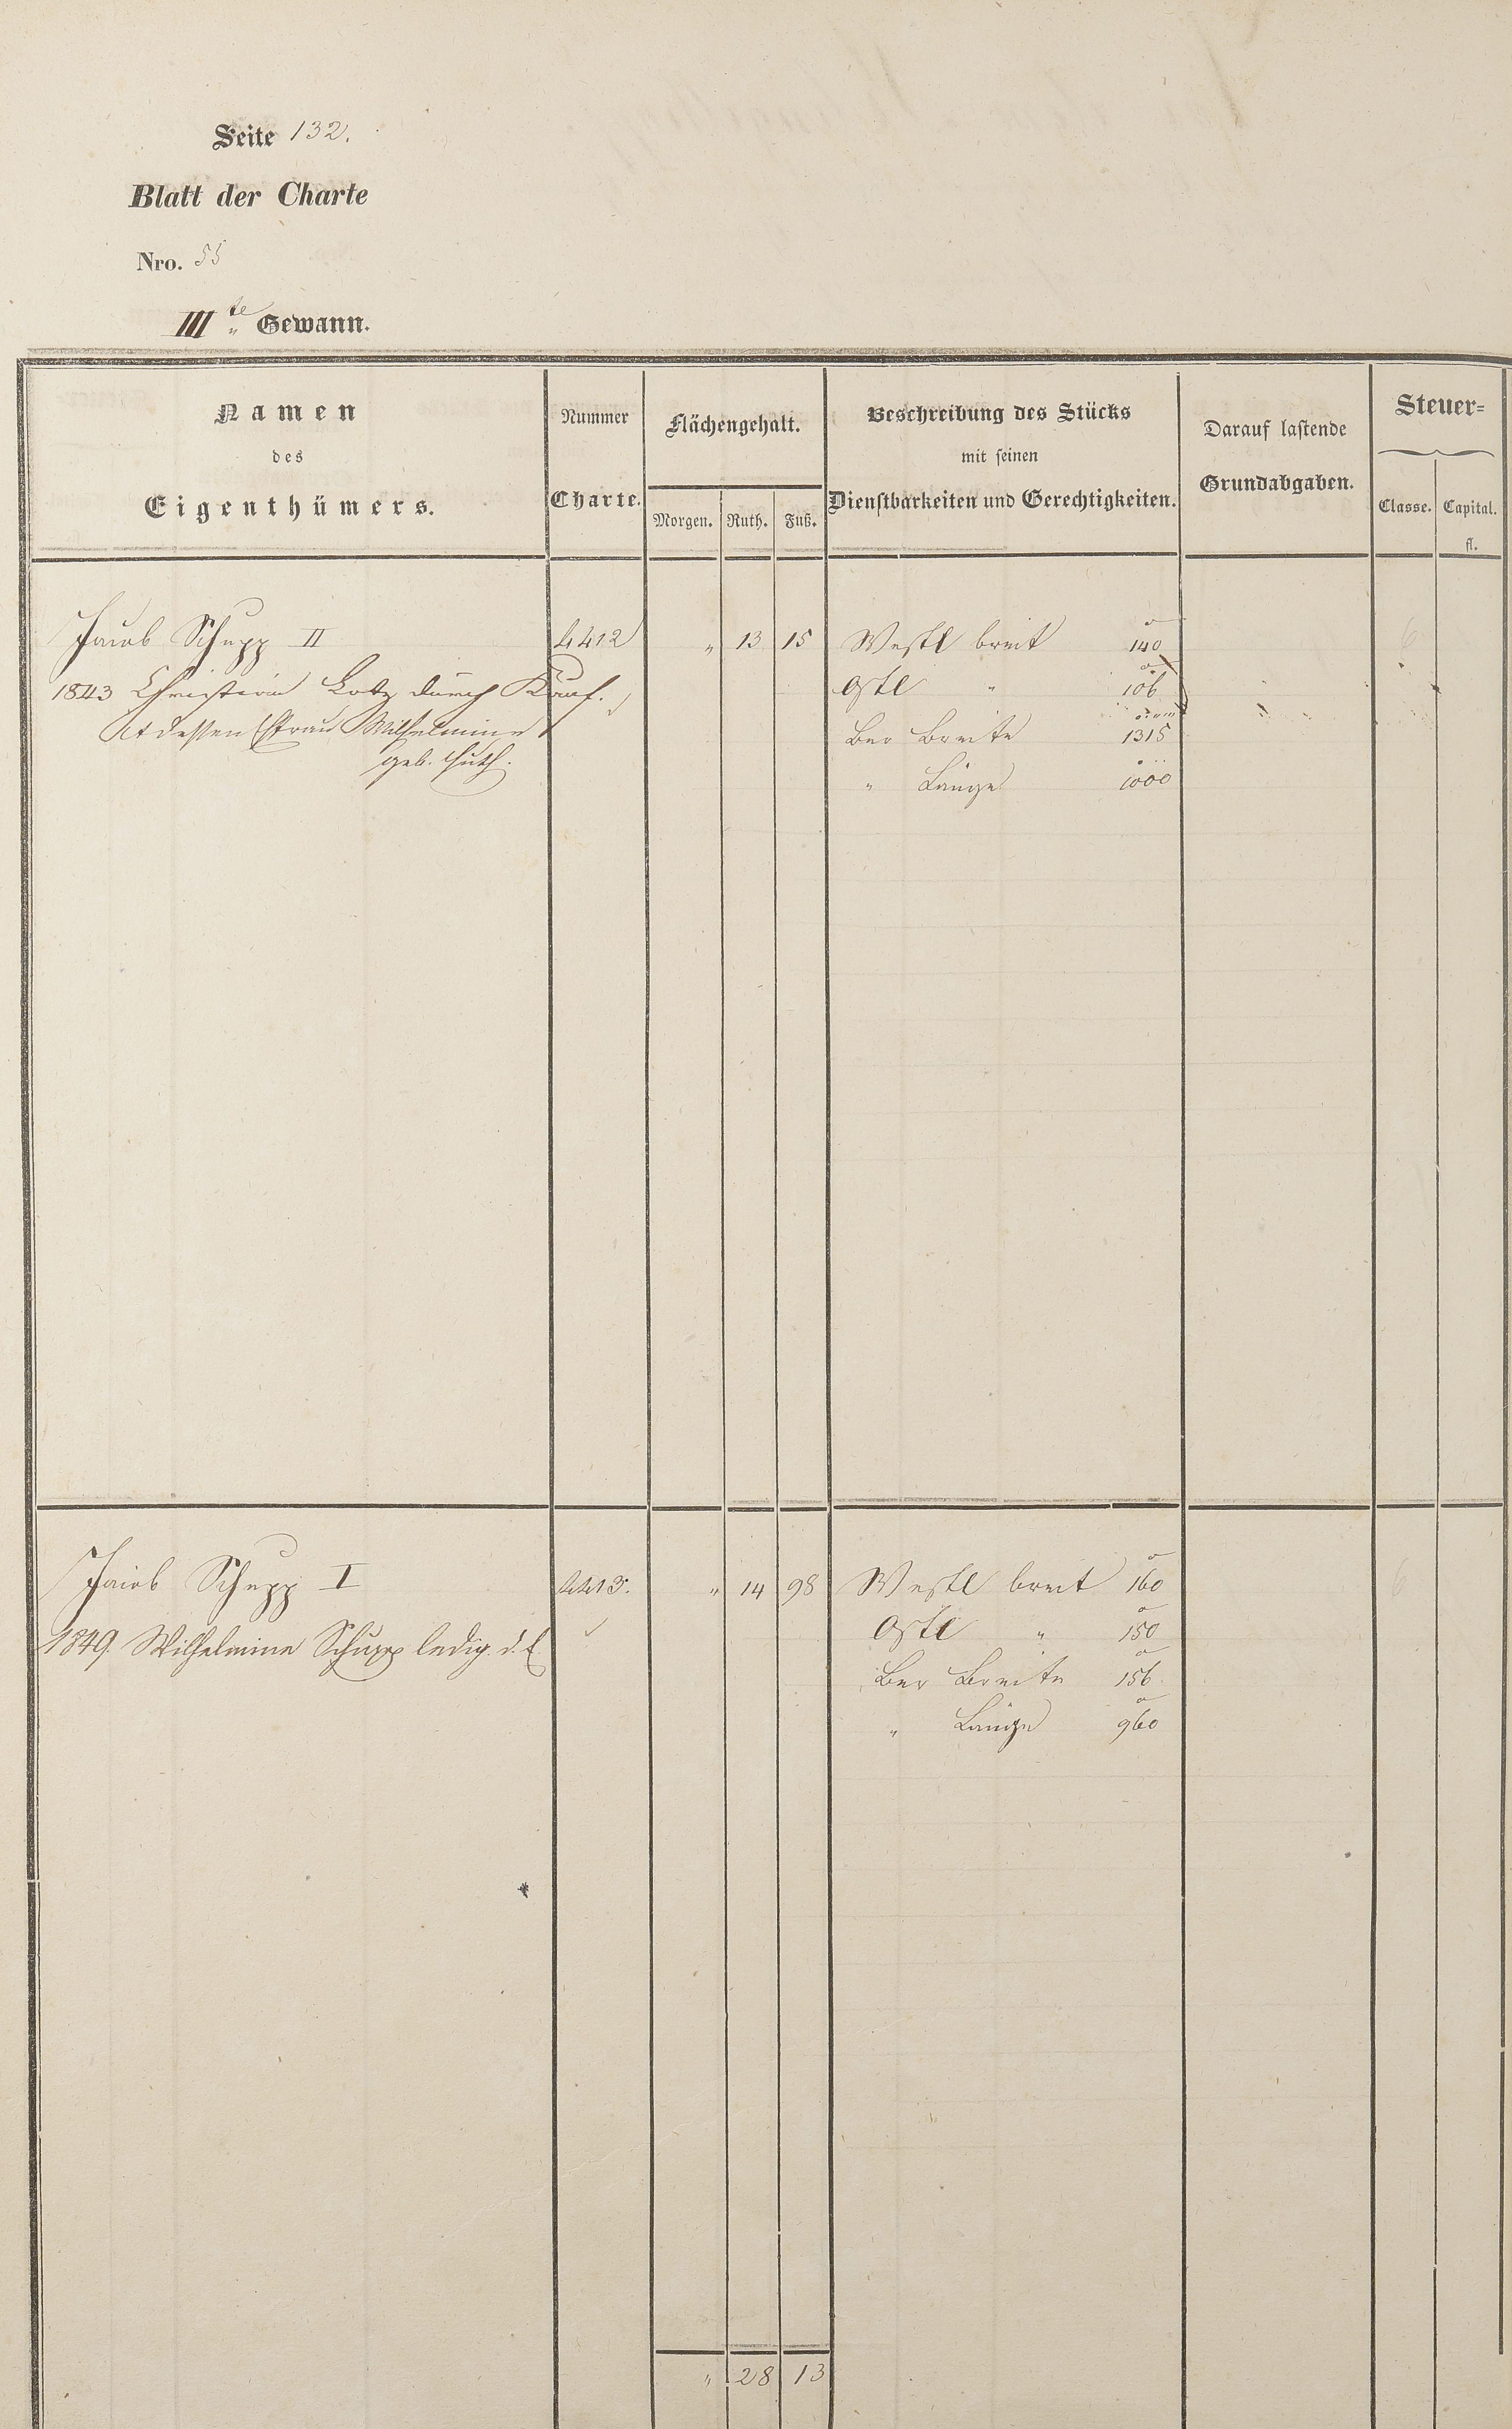 Seite 132.
Blatt der Charte
Nro. 55
III te Gewann.
Namen
des
Eigenthümers.
Nummer
Charte.
Flächengehalt.
Morgen. Ruth. Fuß.
Beschreibung des Stücks
mit seinen
Dienstbarkeiten und Gerechtigkeiten.
Darauf lastende
Grundabgaben.
Steuer=
Classe. Capital.
fl.
Jacob Schupp II 4412 „ 13 15 Westl breit 140 6
1843 Christian Lotz durch Kauf. Ostl „ 106
et dessen Efrau Wilhelmine Ber Breite 1315
geb. Huth.
„ Länge 1000
Jacob Schupp I 4413. „ 14 98 Westl breit 160 6
1849. Wilhelmine Schupp ledig. d. E. Ostl „ 150
Ber Breite 156
„ Länge 960
„ 28 13